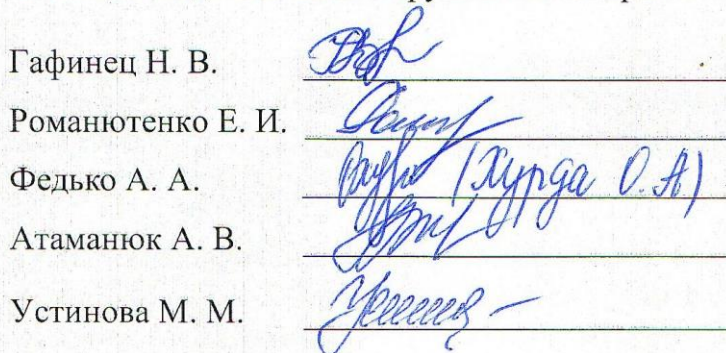 Гафинец Н. В.
Романютенко Е. И.
Федько А. А. (Хурда О.А)
Атаманюк А. В.
Устинова М. М.